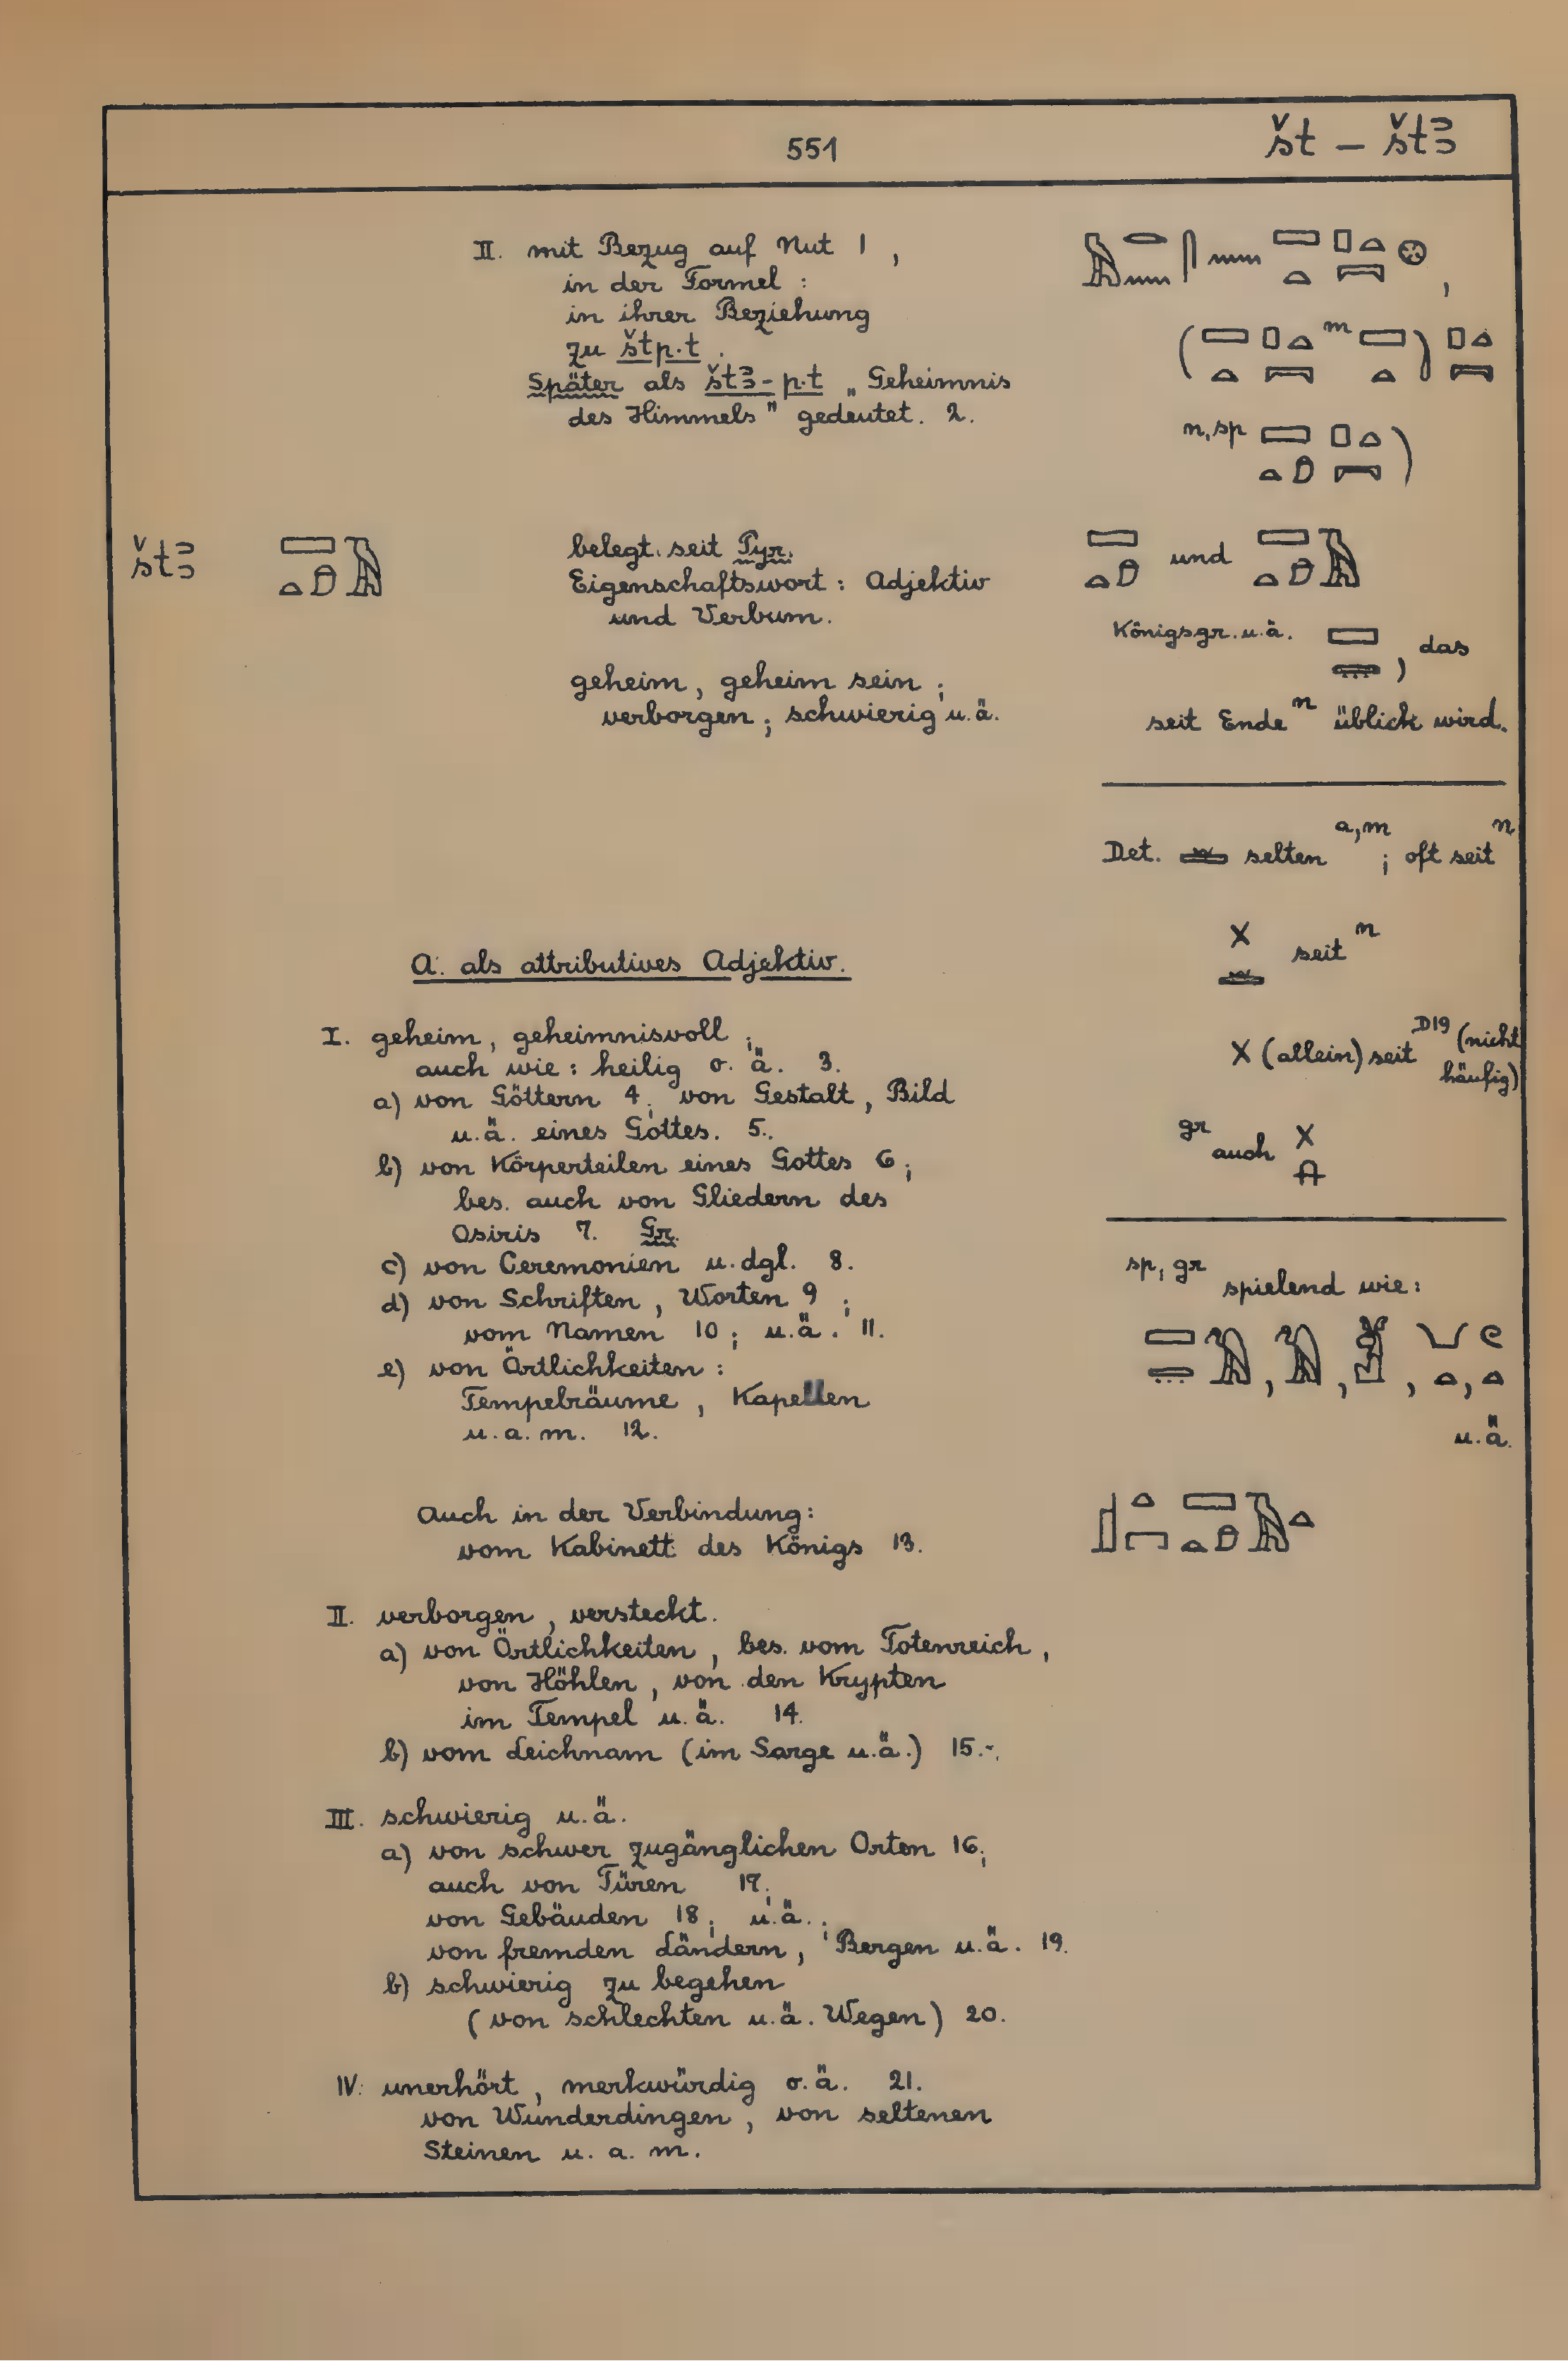 551
št – štꜣ
II. mit Bezug auf Nut 1,
in der Formel:
in ihrer Beziehung
zu štp.t.
Später als štꜣ-p.t „Geheimnis
des Himmels" gedeutet. 2.
m
n, sp
štꜣ
belegt seit Pyr.
Eigenschaftswort: Adjektiv
und Verbum.
geheim, geheim sein;
verborgen; schwierig u.ä.
und
Königsgr. u.ä. , das
seit Ende n üblich wird.
Det. selten a,m; oft seit n
X seit n
X (allein) seit D19 (nicht
häufig)
gr auch X
sp, gr spielend wie:
, , , ,
u.ä.
A. als attributives Adjektiv.
I. geheim, geheimnisvoll;
auch wie: heilig o.ä. 3.
a) von Göttern 4; von Gestalt, Bild
u.ä. eines Gottes. 5.
b) von Körperteilen eines Gottes 6;
bes. auch von Gliedern des
Osiris 7. Gr.
c) von Ceremonien u.dgl. 8.
d) von Schriften, Worten 9;
vom Namen 10; u.ä. 11.
e) von Örtlichkeiten:
Tempelräume, Kapellen
u.a.m. 12.
Auch in der Verbindung:
vom Kabinett des Königs 13.
II. verborgen, versteckt.
a) von Örtlichkeiten, bes. vom Totenreich,
von Höhlen, von den Krypten
im Tempel u.ä. 14.
b) vom Leichnam (im Sarge u.ä.) 15.
III. schwierig u.ä.
a) von schwer zugänglichen Orten 16;
auch von Türen 17;
von Gebäuden 18; u.ä.;
von fremden Ländern, Bergen u.ä. 19.
b) schwierig zu begehen
(von schlechten u.ä. Wegen) 20.
IV. unerhört, merkwürdig o.ä. 21.
von Wunderdingen, von seltenen
Steinen u. a. m.